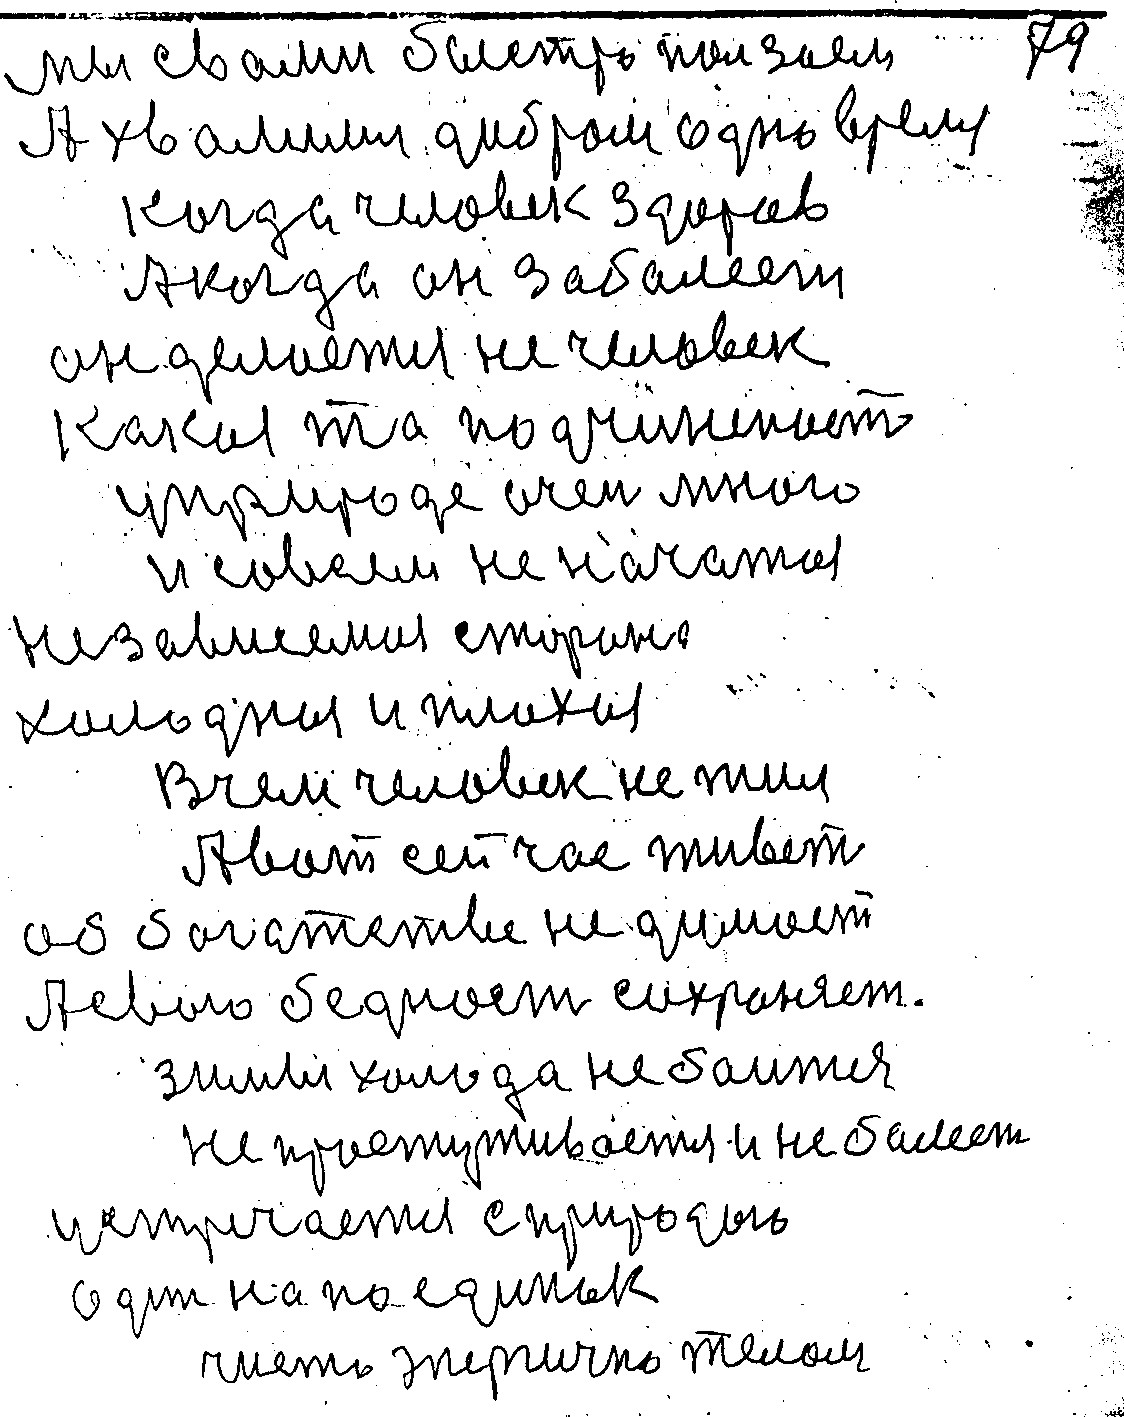 79
мы свами быстро ползаем
А хвалимы дибром одно время
когда человек здоров
Акогда он забалеет
он делается не человек
какая та подчиненость
уприроде очен много
и совсем не начатая
независемая сторона
холодная и плохая
Вчем человек не жил
Авот сейчас живет
об богатстве не думает
Асвою бедност сохраняет.
зимы холода не боится
не простуживается и не балеет
устричается сприродою
один на поединок
чисто энергично телом